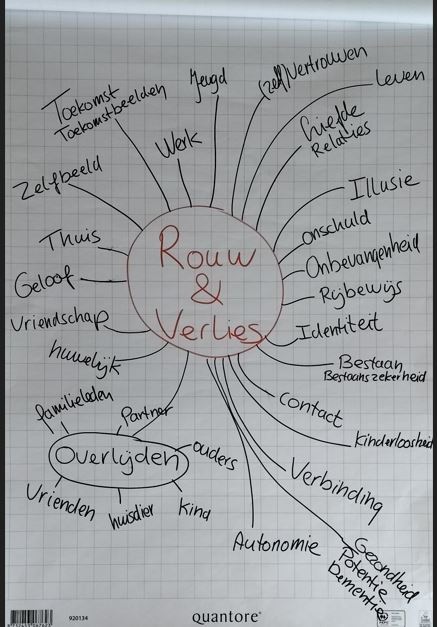 Jeugd
(zelf)Vertrouwen
Leven
Toekomst
Toekomstbeelden
Werk
Liefde
Relaties
Zelfbeeld
Illusie
Thuis
Rouw
&
Verlies
onschuld
Onbevangenheid
Geloof
Rijbewijs
Vriendschap
Identiteit
huwelijk
Bestaan
Bestaanszekerheid
familieleden
Partner
contact
Kinderloosheid
Overlijden
ouders
Verbinding
Vrienden
huisdier
kind
Autonomie
Gezondheid
Potentie
Dementie
920134
quantore